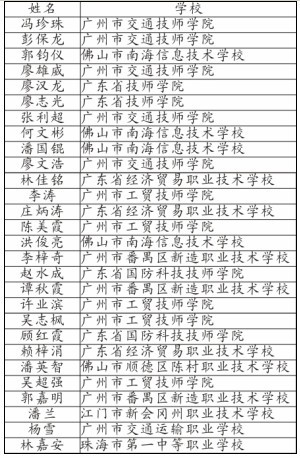 姓名 学校
冯珍珠 广州市交通技师学院
彭保龙 广州市交通技师学院
郭钧仪 佛山市南海信息技术学校
廖雄威 广州市交通技师学院
廖汉龙 广东省技师学院
廖志光 广东省技师学院
张利超 广州市交通技师学院
何文彬 佛山市南海信息技术学校
潘国锟 佛山市南海信息技术学校
廖文浩 广州市交通技师学院
林佳铭 广东省经济贸易职业技术学校
李涛 广州市工贸技师学院
庄炳涛 广东省经济贸易职业技术学校
陈美霞 广州市工贸技师学院
洪俊亮 佛山市南海信息技术学校
李梓奇 广州市番禺区新造职业技术学校
赵水成 广东省国防科技技师学院
谭秋霞 广州市番禺区新造职业技术学校
许业滨 广州市工贸技师学院
吴志枫 广州市工贸技师学院
顾红霞 广东省国防科技技师学院
赖梓涓 广东省经济贸易职业技术学校
潘英智 佛山市顺德区陈村职业技术学校
吴超强 广州市工贸技师学院
郭嘉明 广州市番禺区新造职业技术学校
潘兰 江门市新会冈州职业技术学校
杨雪 广州市交通运输职业学校
林嘉安 珠海市第一中等职业学校